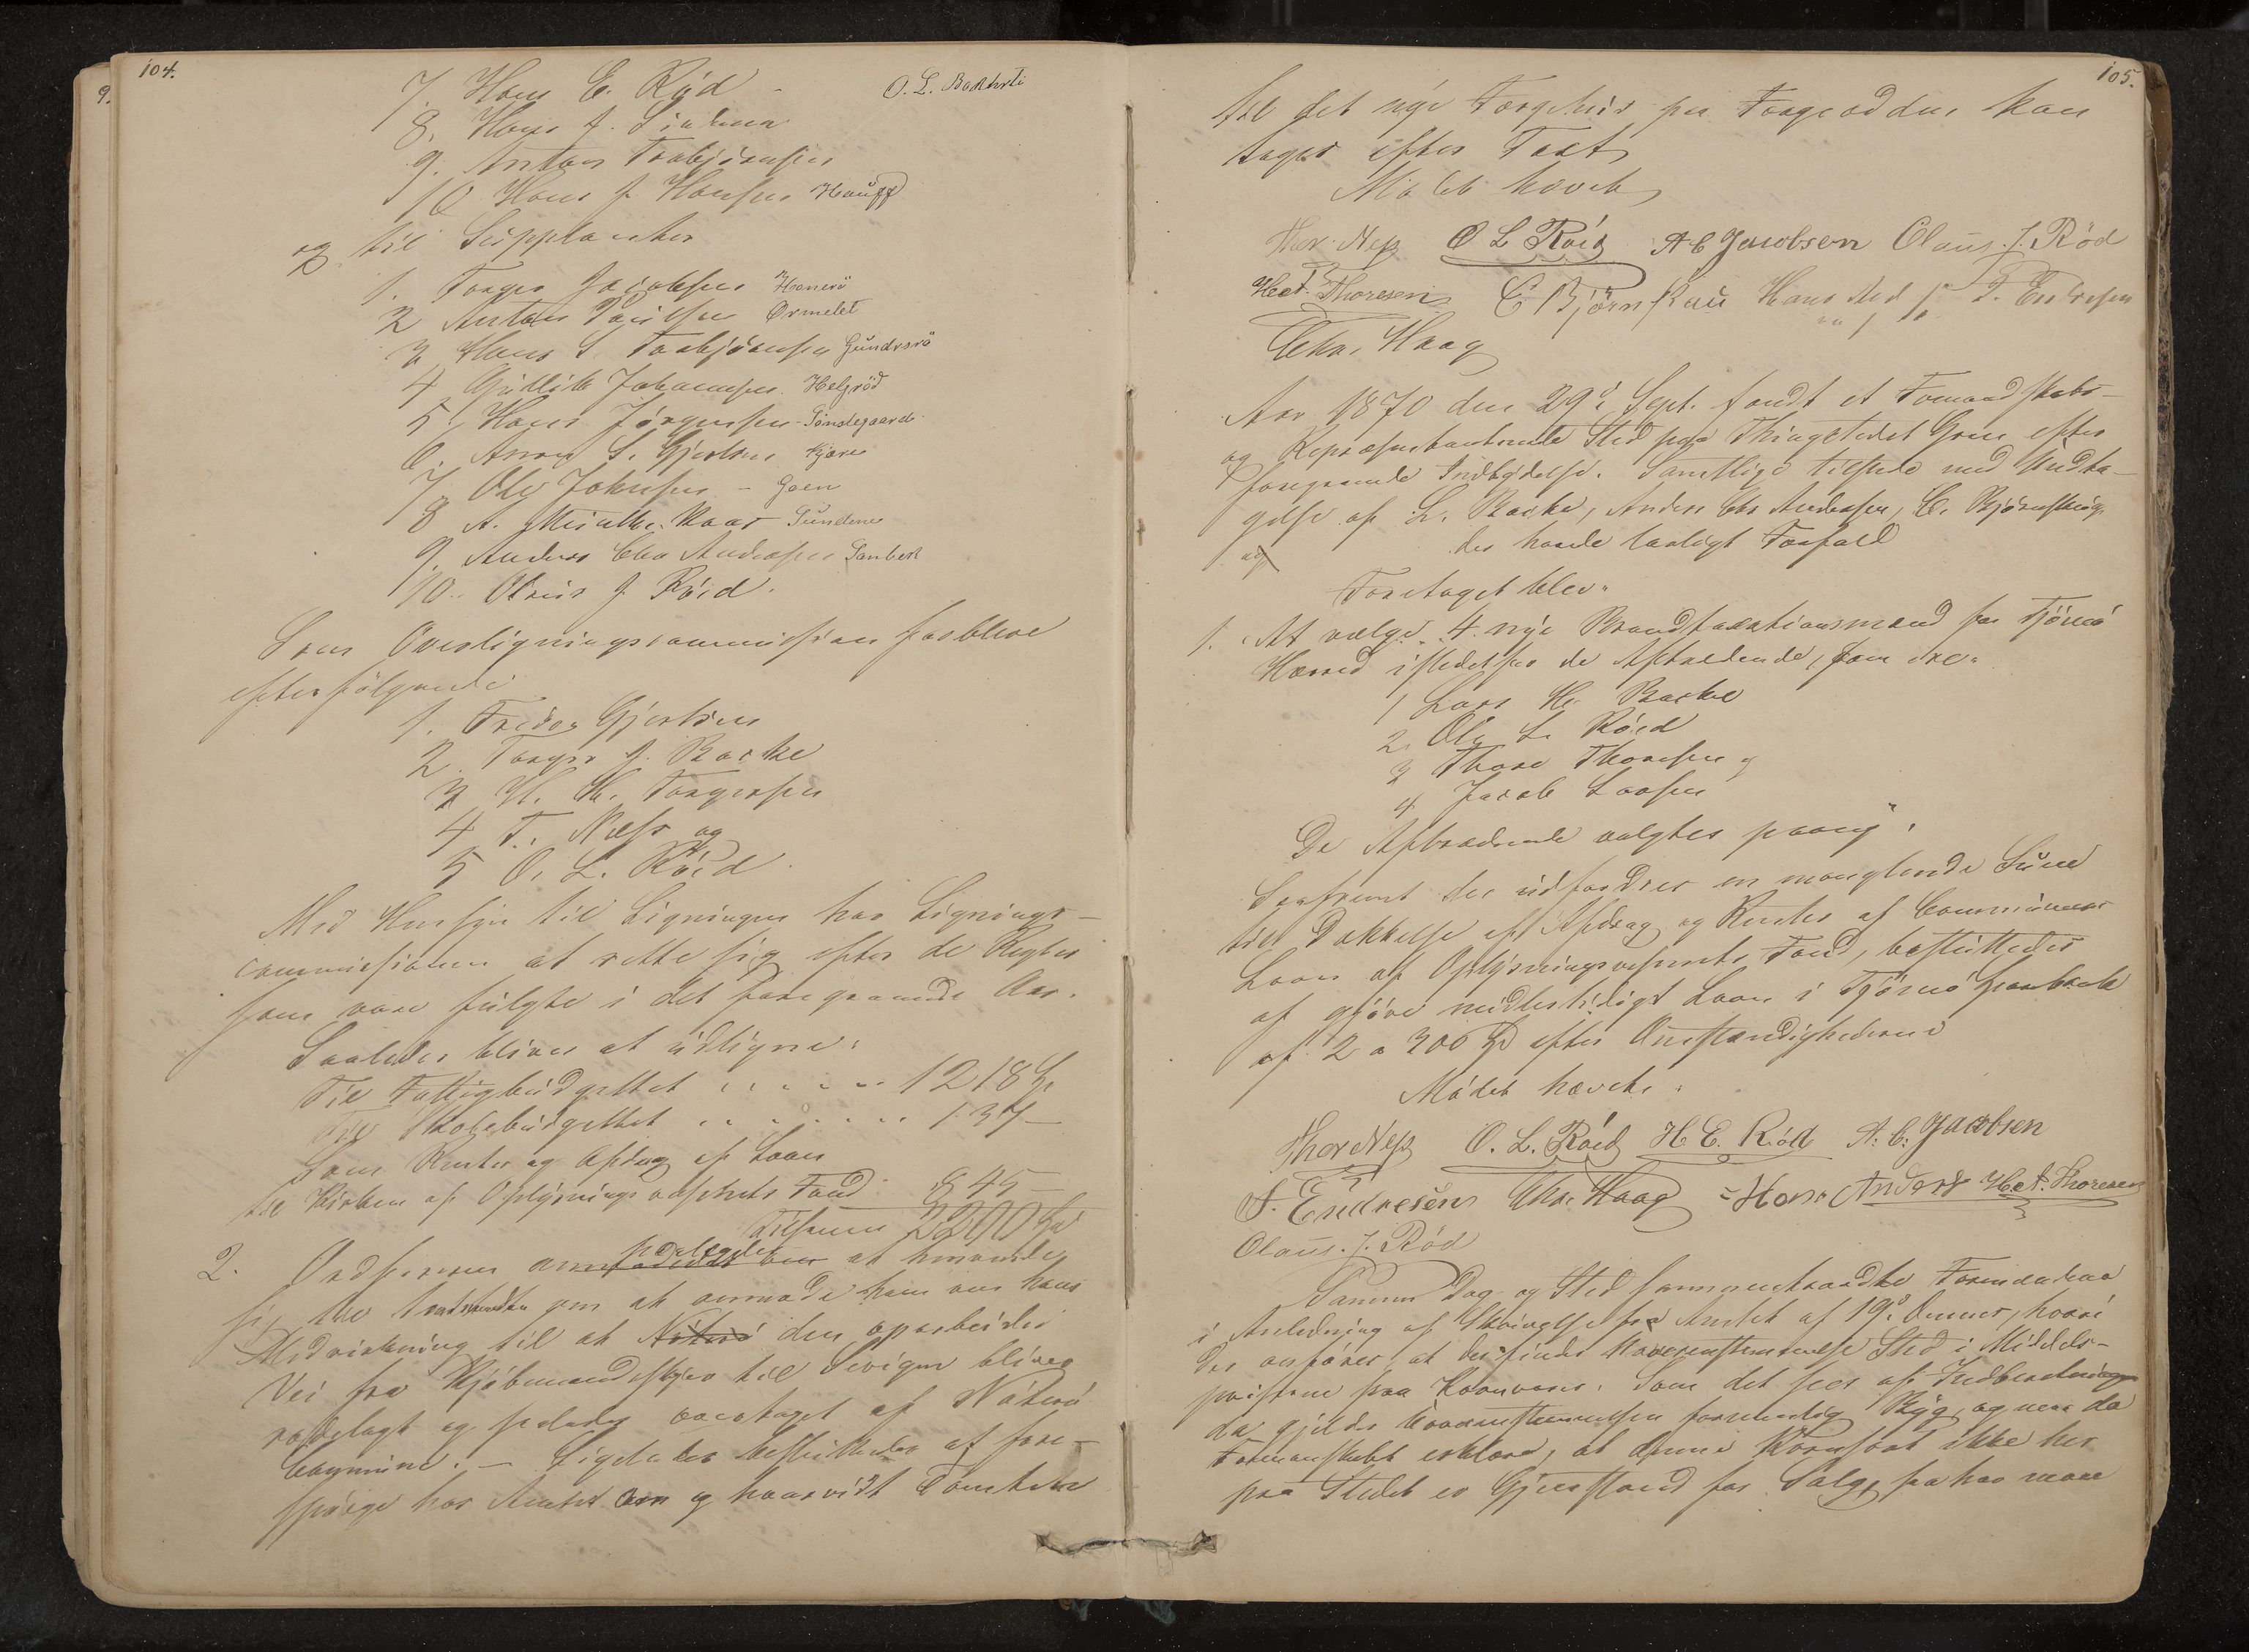 104.
7. Hans E. Röd - O. L. Bakketi
8. Hans J.
9. Anton Torbjörnsen
10 Hans J. Hansen Hauff
og til Supplanter
1. Torger Jacobsen Honerö
2 Anton Paulsen Ormelet
3 Hans S. Torbjörnsen Gundersrö
4 Gullik Johannesen Helgröd
5. Hans Jörgensen Sönstegaard
6. S. Gjertsen Kjære
7 Ole Johnsen - Goen
8 A. Kaas Sundene
9. Anders Chr Andersen Sanbek
10. Olaus J. Röed.
Som Overligningscommission forbleve
efterfölgende
1. Fredr. Gjertsen
2. Torger J. Backe
3 H. Kr. Torgersen
4 T. Næss og
5 O. L. Röed.
Med Hensyn til Ligningen har Lignings-
commissionen at rette sig efter de Regler
som vare fulgte i det foregaaende Aar.
Saaledes bliver at udligne:
Til Fattigbudgettet . . . . . 1218
Til Skolebudgettet . . . . . . 137 -
Som Renter og Afdrag af Laan
til Kirken af Oplysningsvæsenets Fond 845 -
Tilsammen 2200
2. Ordföreren paalagdes at henvende
sig til Amtmanden om at anmode ham om hans
Medvirkning til at den oparbeidede
Vei fra Kjöbmandskjær til Sevigen bliver
rodelagt og saaledes overtaget af Nöterö
Commune. - Ligeledes besluttedes at fore-
spörge hos Amtet om og hvorvidt Tomten
105.
til det nye Færgehus paa Færgeodden kan
tages efter Taxt
Mödet hævet
Thor Næss O L Röed A C Jacobsen Olaus. J. Röd
Het. Thoresen C Björnskau Hans And S. Endresen
Chr. Haag
Aar 1870 den 29de Sept. fandt et Formandskabs-
og Repræsentantmöde Sted paa Thingstedet Goen efter
foregaaende Indbydelse. Samtlige tilstede med Undta-
gelse af L. Backe, Anders Chr Andersen, C. Björnskoug
og der havde lovligt Forfald
Foretaget blev:
1. At vælge 4 nye Brandtaxationsmænd for Tjömö
Herred istedetfor de Aftrædende, som ere:
1 Lars H. Backe
2. Ole L. Röed
3 Thore Thoresen og
4 Jacob Larsen
De Aftrædende valgtes paany.
Saafremt der udfordres en manglende Sum
til Dækkelse af Afdrag og Renter af Communens
Laan af Oplysningsvæsenets Fond, besluttedes
at gjöre midlertidigt Laan i Tjömö Sparebank
af 2 a 300 Spd efter Omstændighederne
Mödet hævet.
Thor Næss O. L. Röed H. E. Röd A. C. Jacobsen
S. Endresen Chr. Haag Hans Anders Het. Thoresen
Olaus. J. Röd
Samme Dag og Sted sammentraadte Formandskabet
i Anledning af Skrivelse fra Amtet af 19de dennes, hvori
der anföres, at der finde Uoverensstemmelse Sted i Middels-
priserne paa Kornvarer. Som det sees af Indberetningen
da gjelder Uoverensstemmelsen fornemmelig Byg, og maa da
Formandskabet erklære, at denne Kornsort ikke her
paa Stedet er Gjenstand for Salg, saa har man